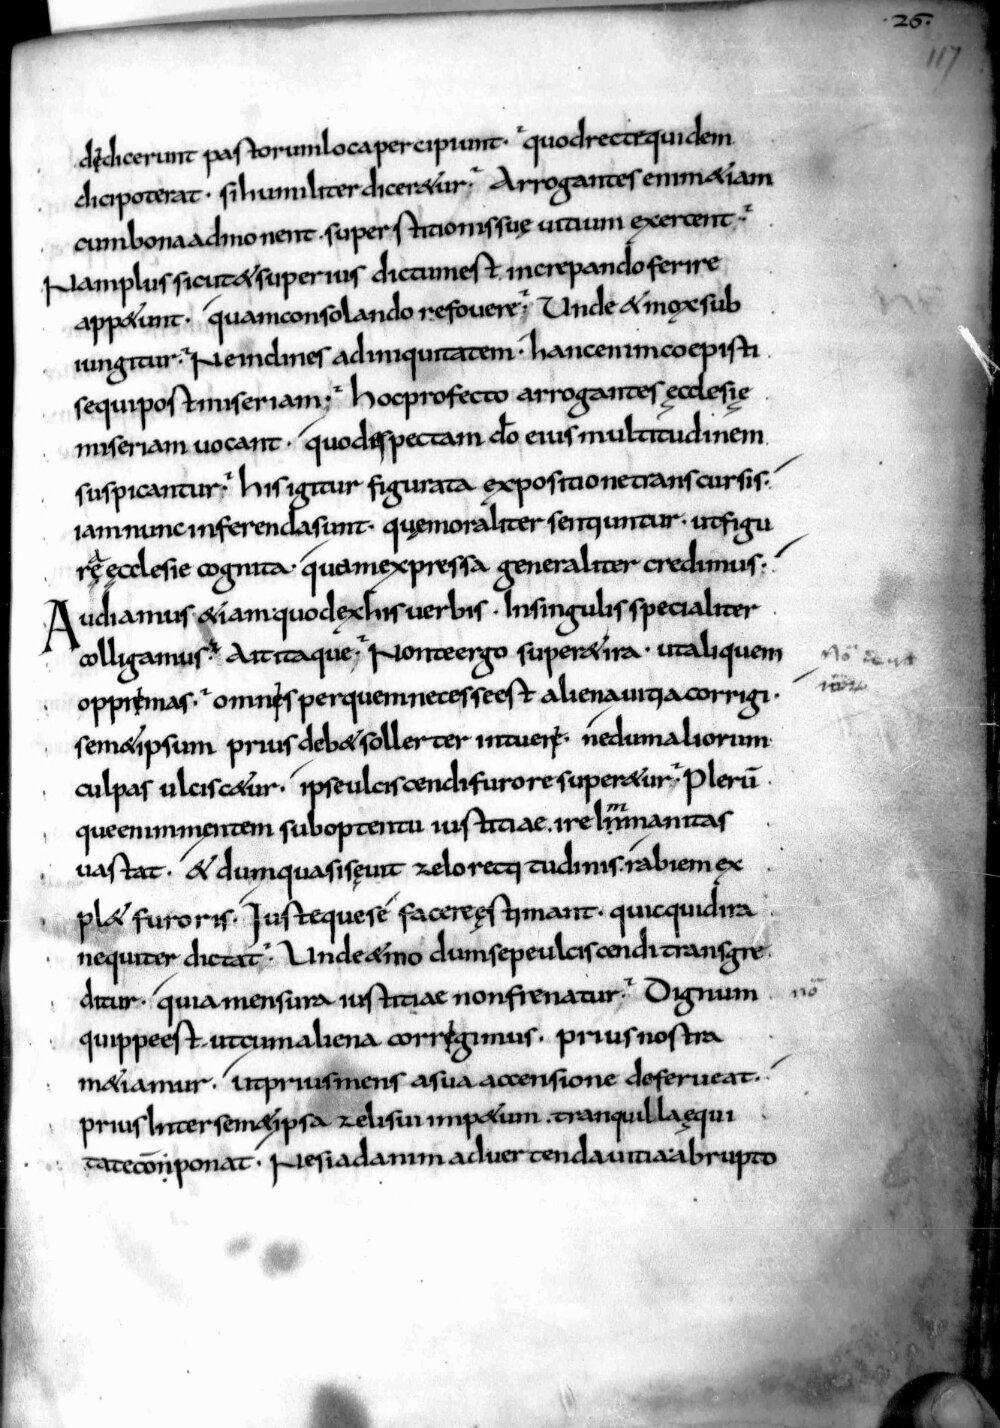 ·26·
117
dedicerunt pastorum loca percipiunt· quod recte quidem
dici poterat· si humiliter diceretur· Arrogantes enim etiam
cum bona admonent· superstitionis suę uitium exercent·
Nam plus sicut & superius dictum est increpando ferire
appetunt· quam consolando refouere· Unde & mox sub
iungitur· Ne indines ad iniquitatem· hanc enim coepisti
sequi post miseriam· hoc profecto arrogantes ęcclesię
miseriam uocant· quod despectam do eius multitudinem
suspicantur· his igitur figurata expositione transcursis·
iam nunc inferenda sunt· quę moraliter sentiuntur· ut figu
ra ęcclesie cognita· quam expressa generaliter credimus·
Audiamus & iam quod ex his uerbis· In singulis specialiter
colligamus· Ait itaque· Non te ergo superet ira· ut aliquem
opprimas· omnis per quem necesse est aliena uitia corrigi·
semetipsum prius debet sollerter intueri· ne dum aliorum
culpas ulciscetur· ipse ulciscendi furore superetur· Plerū
que enim mentem sub optentu iustitiae· ire Inmanitas
uastat· & dum quasi sęuit zelo rectitudinis· rabiem ex
plet furoris· Iusteque se facere ęstimant· quicquid ira
nequiter dictat· Unde & mo dum sepe ulciscendi transgre
ditur· quia mensura iustitiae non frenatur· Dignum
nō
quippe est· ut cum aliena corrigimus· prius nostra
metiamur· ut prius mens a sua accensione deferueat·
prius Inter semetipsa zeli sui impetum· tranquilla ęqui
tate conponat· Ne si ad animaduertenda uitia abrupto